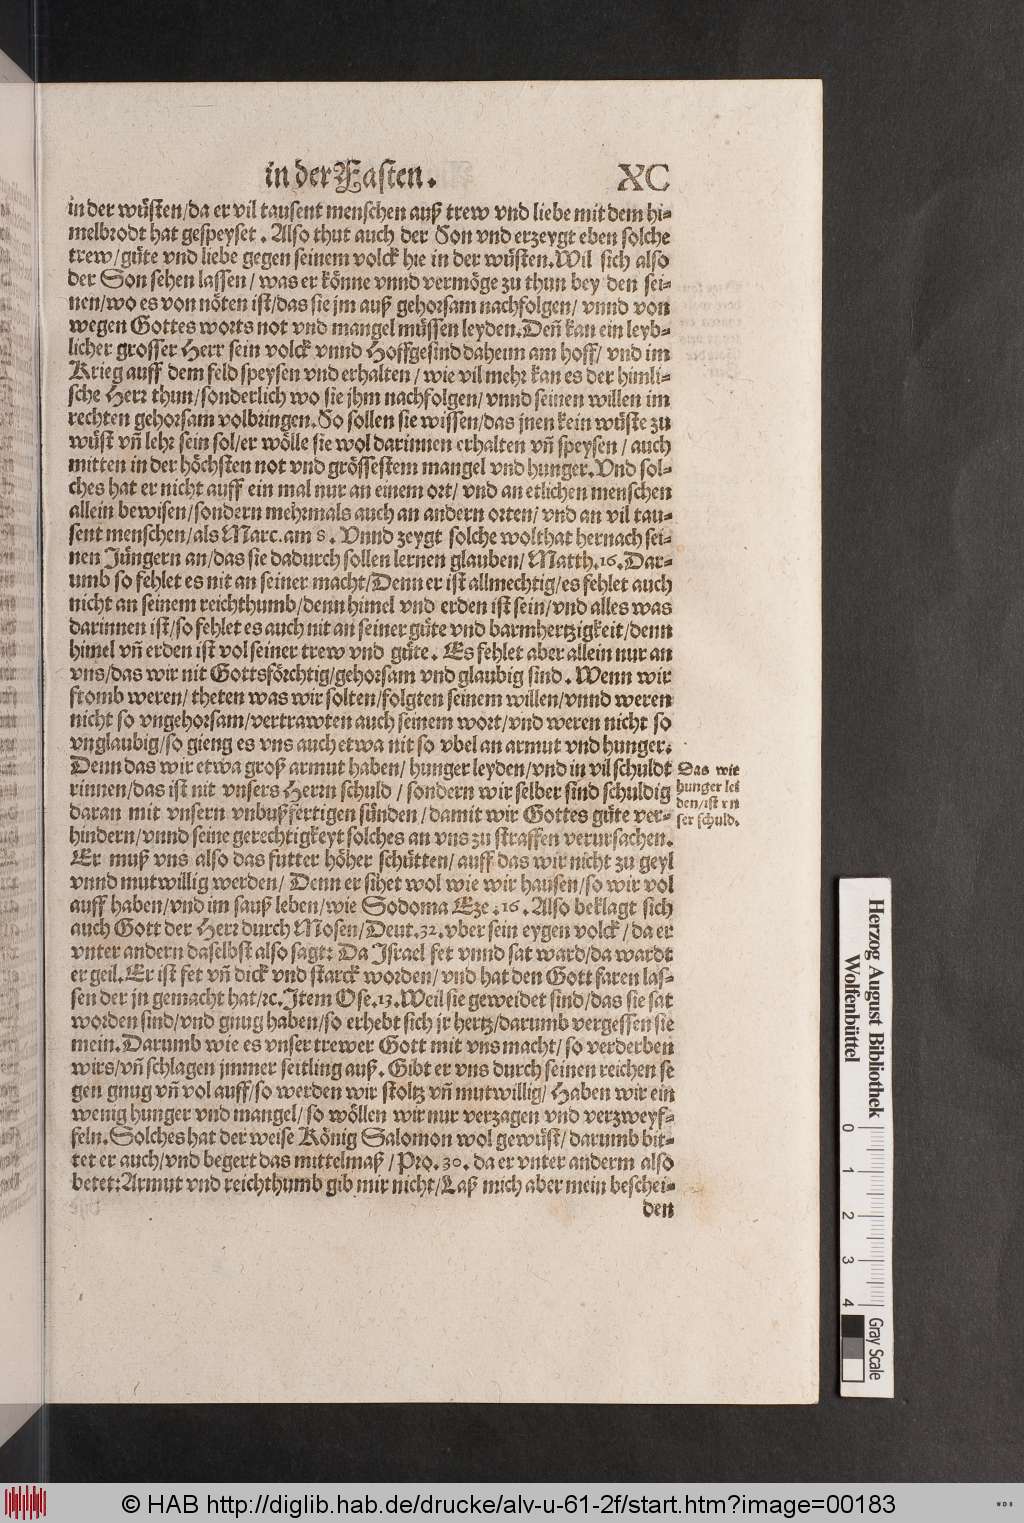 in der Fasten.
XC
in der wuͤsten/da er vil tausent menschen auß trew vnd liebe mit dem hi⸗
melbrodt hat gespeyset. Also thut auch der Son vnd erzeygt eben solche
trew/guͤte vnd liebe gegen seinem volck hie in der wuͤsten. Wil sich also
der Son sehen lassen/was er koͤnne vnnd vermoͤge zu thun bey den sei⸗
nen/wo es von noͤten ist/das sie jm auß gehorsam nachfolgen/vnnd von
wegen Gottes worts not vnd mangel muͤssen leyden. Deñ kan ein leyb⸗
licher grosser Herr sein volck vnnd Hoffgesind daheim am hoff/vnd im
Krieg auff dem feld speysen vnd erhalten/wie vil mehr kan es der himli⸗
sche Herr thun/sonderlich wo sie jhm nachfolgen/vnnd seinen willen im
rechten gehorsam volbringen. So sollen sie wissen/das jnen kein wuͤste zu
wuͤst vñ lehr sein sol/er woͤlle sie wol darinnen erhalten vñ speysen/auch
mitten in der hoͤchsten not vnd groͤssestem mangel vnd hunger. Vnd sol⸗
ches hat er nicht auff ein mal nur an einem ort/vnd an etlichen menschen
allein bewisen/sondern mehrmals auch an andern orten/vnd an vil tau⸗
sent menschen/als Marc. am 8. Vnnd zeygt solche wolthat hernach sei⸗
nen Juͤngern an/das sie dadurch sollen lernen glauben/Matth. 16. Dar⸗
umb so fehlet es nit an seiner macht/Denn er ist allmechtig/es fehlet auch
nicht an seinem reichthumb/denn himel vnd erden ist sein/vnd alles was
darinnen ist/so fehlet es auch nit an seiner guͤte vnd barmhertzigkeit/denn
himel vñ erden ist vol seiner trew vnd guͤte. Es fehlet aber allein nur an
vns/das wir nit Gottsfoͤrchtig/gehorsam vnd glaubig sind. Wenn wir
fromb weren/theten was wir solten/folgten seinem willen/vnnd weren
nicht so vngehorsam/vertrawten auch seinem wort/vnd weren nicht so
vnglaubig/so gieng es vns auch etwa nit so vbel an armut vnd hunger.
Denn das wir etwa groß armut haben/hunger leyden/vnd in vil schuldt
rinnen/das ist nit vnsers Herrn schuld/sondern wir selber sind schuldig
daran mit vnsern vnbußfertigen suͤnden/damit wir Gottes guͤte ver⸗
hindern/vnnd seine gerechtigkeyt solches an vns zu straffen verursachen.
Er muß vns also das futter hoͤher schuͤtten/auff das wir nicht zu geyl
vnnd mutwillig werden/Denn er sihet wol wie wir hausen/so wir vol
auff haben/vnd im sauß leben/wie Sodoma Eze. 16. Also beklagt sich
auch Gott der Herr durch Mosen/Deut. 32. vber sein eygen volck/da er
vnter andern daselbst also sagt: Da Israel fet vnnd sat ward/da wardt
er geil. Er ist fet vñ dick vnd starck worden/vnd hat den Gott faren las⸗
sen der jn gemacht hat/ꝛc. Item Ose. 13. Weil sie geweidet sind/das sie sat
worden sind/vnd gnug haben/so erhebt sich jr hertz/darumb vergessen sie
mein. Darumb wie es vnser trewer Gott mit vns macht/so verderben
wirs/vñ schlagen jmmer seitling auß. Gibt er vns durch seinen reichen se
gen gnug vñ vol auff/so werden wir stoltz vñ mutwillig/Haben wir ein
wenig hunger vnd mangel/so woͤllen wir nur verzagen vnd verzweyf⸗
feln. Solches hat der weise Koͤnig Salomon wol gewuͤst/darumb bit⸗
tet er auch/vnd begert das mittelmaß/Pro. 30. da er vnter anderm also
betet: Armut vnd reichthumb gib mir nicht/Laß mich aber mein beschei⸗
den
Das wir
hunger lei
den/ist vn
ser schuld.
Herzog August Bibliothek
Wolfenbüttel
0 1 2 3 4
Gray Scale
© HAB http://diglib.hab.de/drucke/alv-u-61-2f/start.htm?image=00183